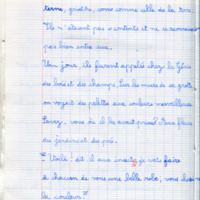 terne, grisâtre, comme celle de la terre.
Ils n'étaient pas contents et ne se
pas bien entre eux.
Un jour, ils furent appelés chez le Génie
des bois et des champs. Sur les murs de sa grotte,
on voyait des palettes aux couleurs merveilleuses.
où il les avait prises ? Aux fleurs
du jardin et des prés.
" Voilà ! dit-il aux insectes je vais faire
à chacun de vous une belle robe, vous
la couleur. "